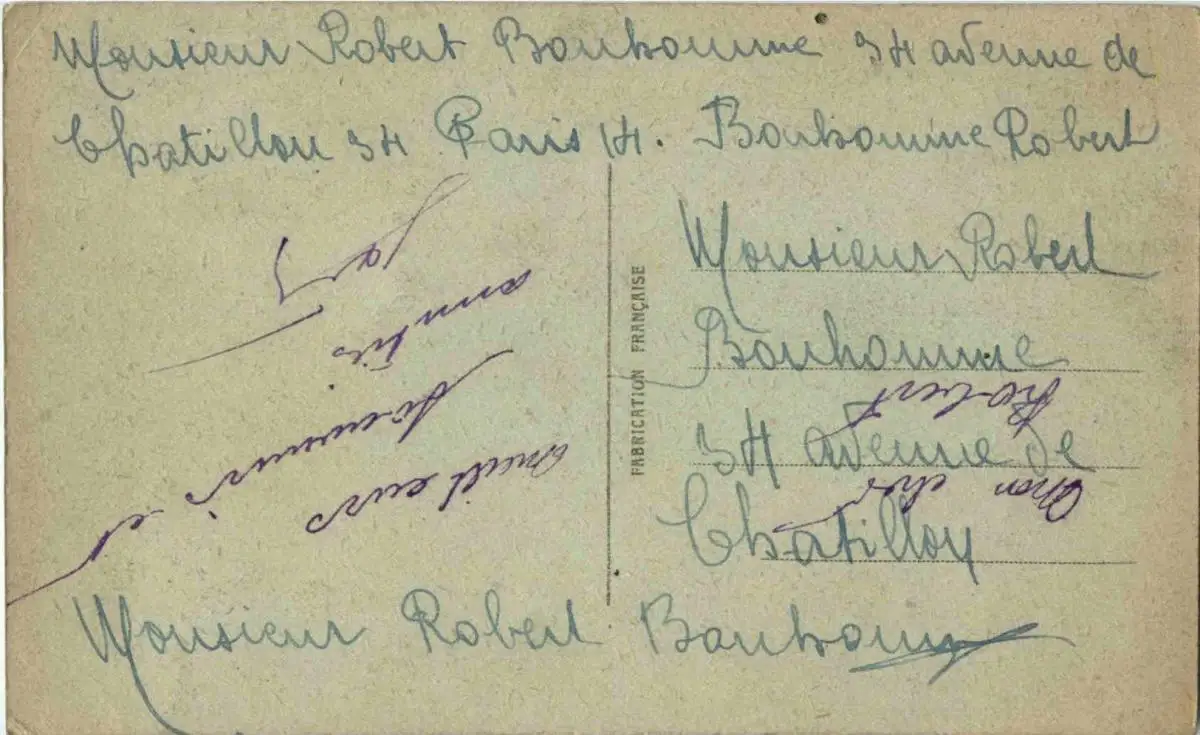 Monsieur Robert Bonhomme 34 avenue de
Chatillon 34 Paris 14. Bonhomme Robert
Monsieur Robert
Bonhomme
34 avenue de
Chatillon
Monsieur Robert Bonhomme
FABRICATION FRANÇAISE
Mon cher
Robert
meilleurs
souvenirs et
amitiés